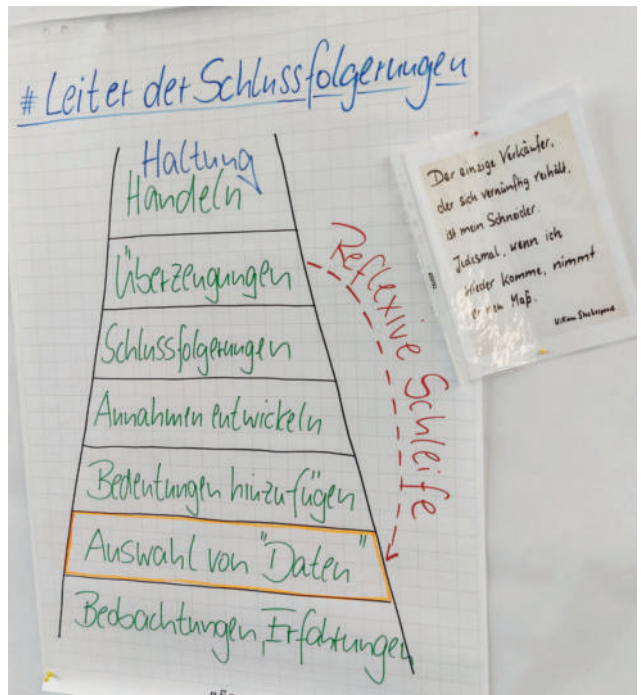 # Leiter der Schlussfolgerungen
Haltung
Handeln
Überzeugungen
Schlussfolgerungen
Annahmen entwickeln
Bedeutungen hinzufügen
Auswahl von "Daten"
Beobachtungen, Erfahrungen
Reflexive Schleife
Der einzige Verkäufer,
der sich vernünftig verhält,
ist mein Schneider.
Jedesmal, wenn ich
wieder komme, nimmt
er neu Maß.
William Shakespeare